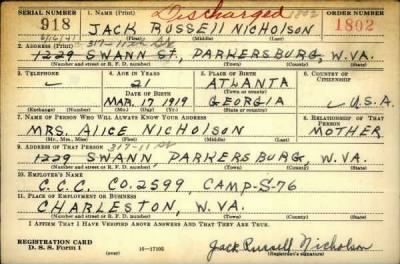 Discharged 1802
SERIAL NUMBER 1. NAME (Print) ORDER NUMBER
918 JACK RUSSELL NICHOLSON 1802
(First) (Middle) (Last)
6/16/41 317-11th St
2. ADDRESS (Print)
1229 SWANN ST, PARKERSBURG, W.VA.
(Number and street or R. F. D. number) (Town) (County) (State)
3. TELEPHONE 4. AGE IN YEARS 5. PLACE OF BIRTH 6. COUNTRY OF CITIZENSHIP
21 ATLANTA
DATE OF BIRTH (Town or county)
MAR. 17 1919 GEORGIA U.S.A.
(Exchange) (Number) (Mo.) (Day) (Yr.) (State or country)
7. NAME OF PERSON WHO WILL ALWAYS KNOW YOUR ADDRESS 8. RELATIONSHIP OF THAT PERSON
MRS. ALICE NICHOLSON MOTHER
(Mr., Mrs., Miss) (First) (Middle) (Last)
9. ADDRESS OF THAT PERSON 317-11 St
1229 SWANN, PARKERSBURG, W.VA.
(Number and street or R. F. D. number) (Town) (County) (State)
10. EMPLOYER'S NAME
C.C.C. CO. 2599, CAMP-S-76
11. PLACE OF EMPLOYMENT OR BUSINESS
CHARLESTON, W.VA.
(Number and street or R. F. D. number) (Town) (County) (State)
I AFFIRM THAT I HAVE VERIFIED ABOVE ANSWERS AND THAT THEY ARE TRUE.
REGISTRATION CARD
D. S. S. Form 1 (over) 16-17105 Jack Russell Nicholson
(Registrant's signature)